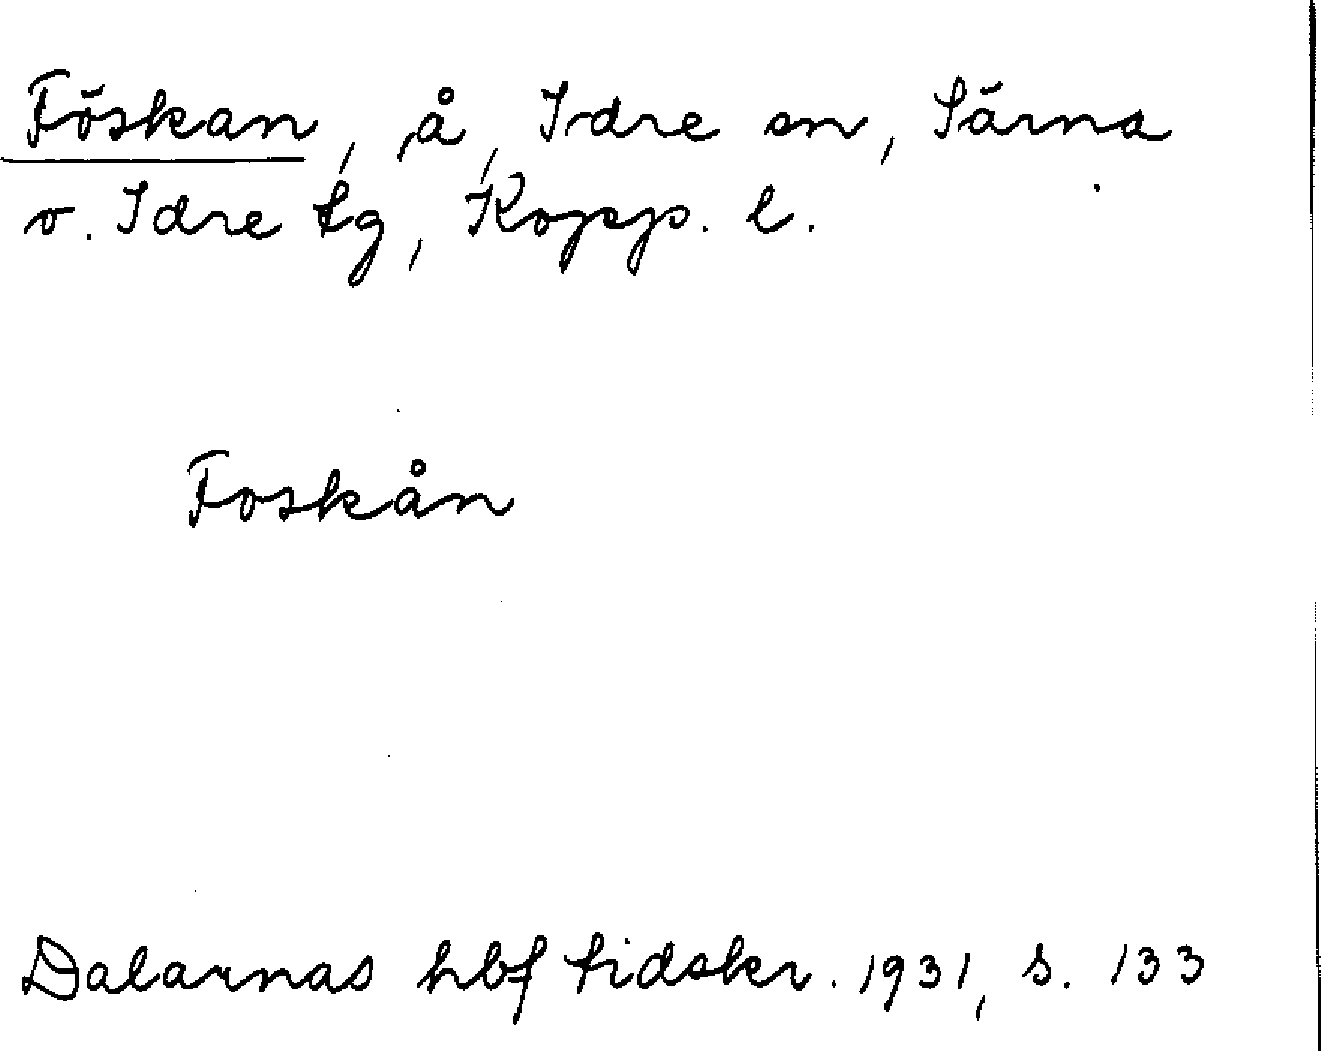 Föskan, å, Idre sn, Särna
o. Idre tg, Kopp. l.
Foskån
Dalarnas hbf tidskr. 1931, s. 133